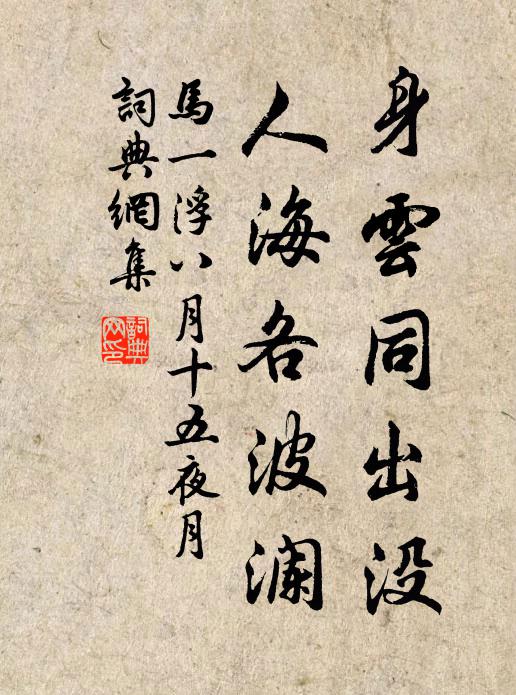 身雲同出没
人海各波澜
馬一浮八月十五夜月
詞典網集
詞典
网印